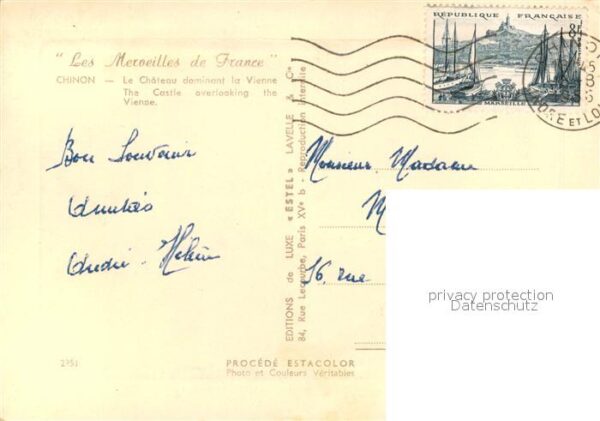 "Les Merveilles de France"
CHINON — Le Château dominant la Vienne
The Castle overlooking the
Vienne.
Bon Souvenir
Amitiés
André - Hélène
2351
PROCÉDÉ ESTACOLOR
Photo et Couleurs Véritables
EDITIONS de LUXE «ESTEL» LAVELLE & Cie
84, Rue Lecourbe, Paris XVe b - Reproduction interdite
RÉPUBLIQUE FRANÇAISE
8F
MARSEILLE
RE ET LO
Monsieur Madame
M
36, rue
privacy protection
Datenschutz